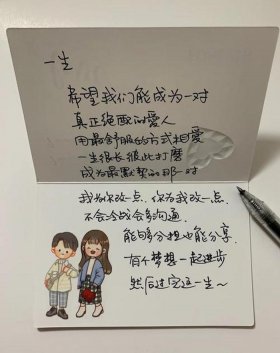 一生
希望我们能成为一对
真正绝配的爱人
用最舒服的方式相愛
一生很长彼此打磨
成为最默契的那一对
我为你改一点,你为我改一点.
不会冷战会多沟通.
能够分担也能分享.
有个梦想一起进步
然后过完这一生~